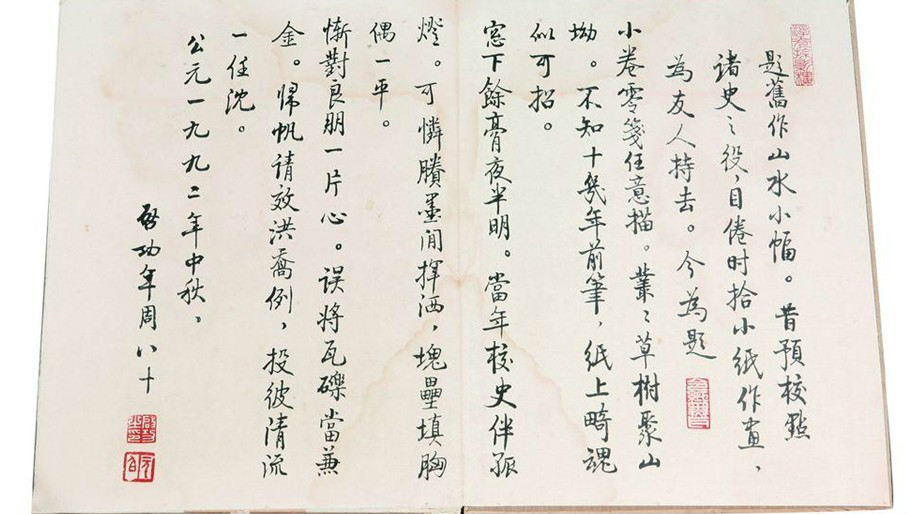 題舊作山水小幅。昔預校點
諸史之役,目倦时拾小紙作畫,
為友人持去。今為題
小卷零箋任意描。叢〻草樹聚山
坳。不知十幾年前筆,紙上畸魂
似可招。
窓下餘膏夜半明。當年校史伴孤
燈。可憐賸墨閒揮洒,塊壘填胸
偶一平。
慚對良朋一片心。误將瓦礫當兼
金。歸帆请效洪喬例,投彼清流
一任沈。
公元一九九二年中秋,
啓功年周八十